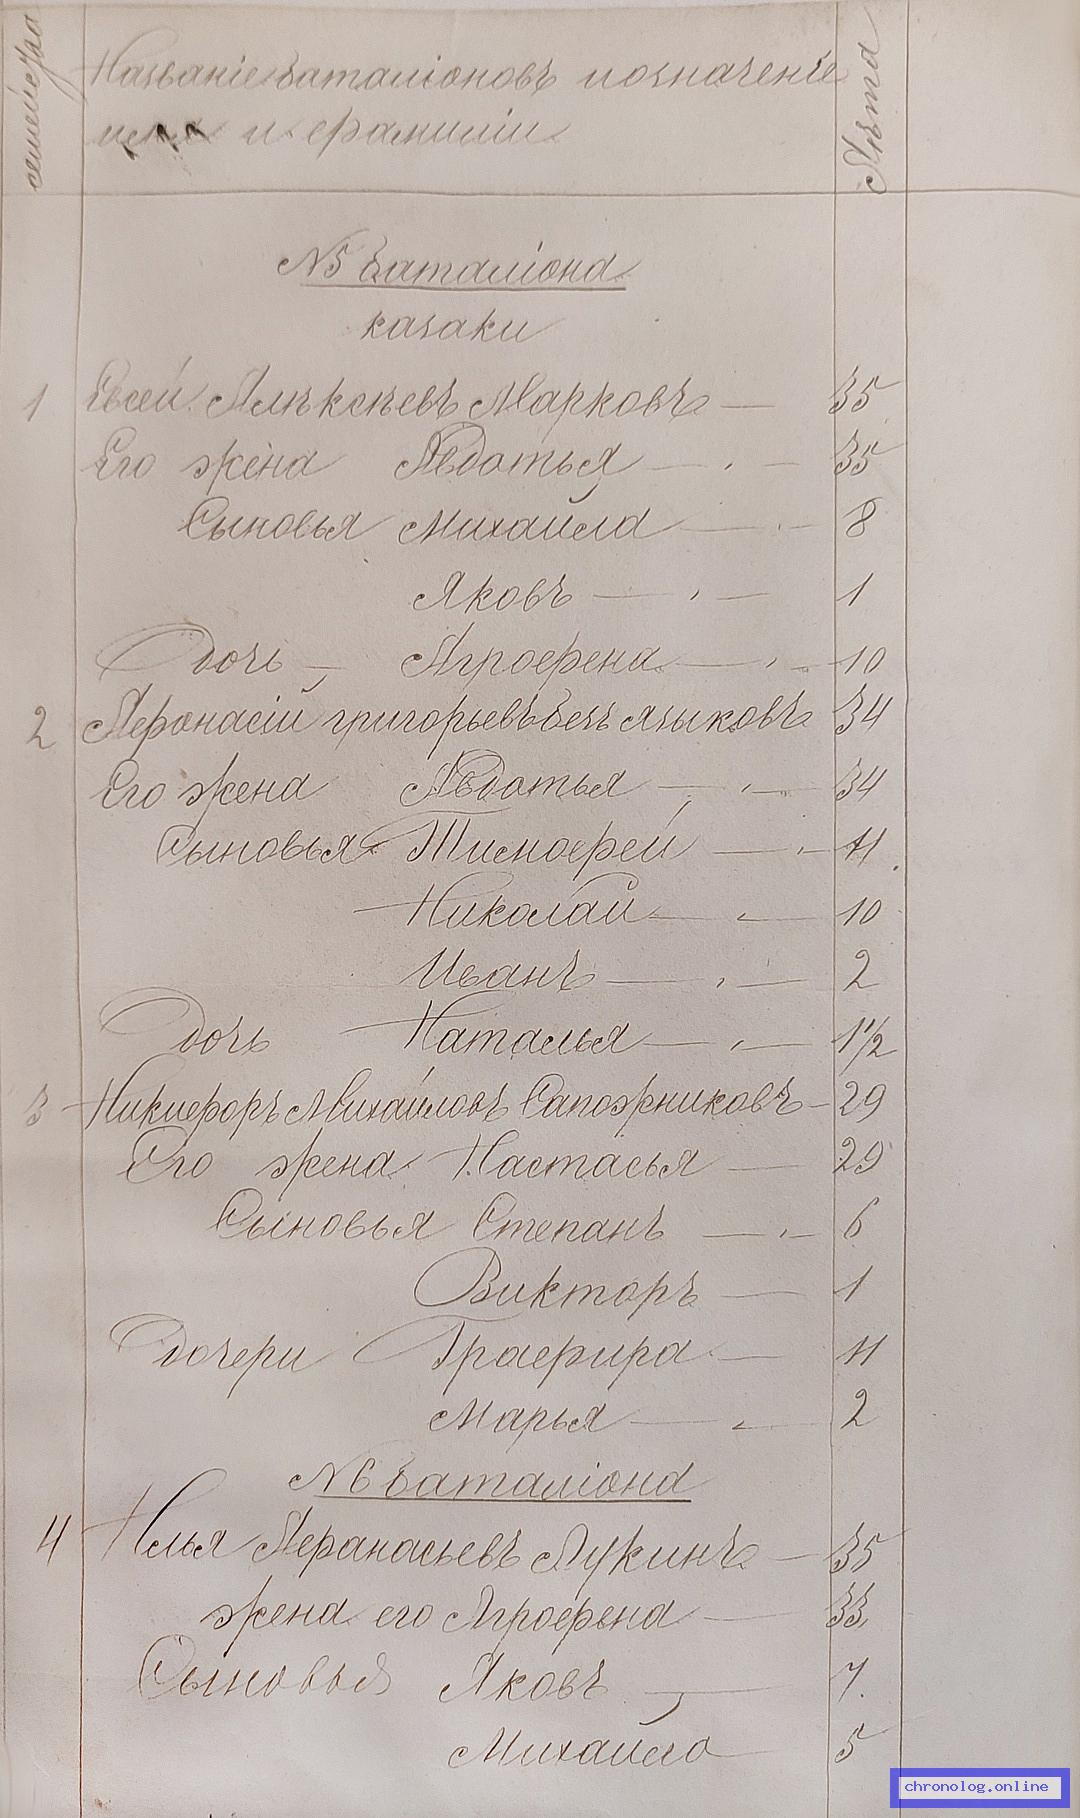 семейства
Названіе баталіоновъ и означеніе
имя и фамиліи
Лѣта
№5 баталіона
казаки
1 Евсей Алѣксѣевъ Марковъ — 35
Его жена Авдотья — 35
Сыновья Михайла — 8
Яковъ — 1
Дочь — Агрофена — 10
2 Афонасій григорьевъ безъязыковъ 34
Его жена Авдотья — 34
Сыновья Тимофей — 11
Николай — 10
Иванъ — 2
Дочь Наталья — 1 1/2
3 Никифоръ Михайловъ Сапожниковъ — 29
Его жена Настасья — 29
Сыновья Степанъ — 6
Викторъ — 1
Дочери Графира — 11
Марья — 2
№6 баталіона
4 Илья Афанасьевъ Лукинъ — 35
жена его Агрофена — 33
Сыновья Яковъ — 7
Михайло — 5
chronolog.online